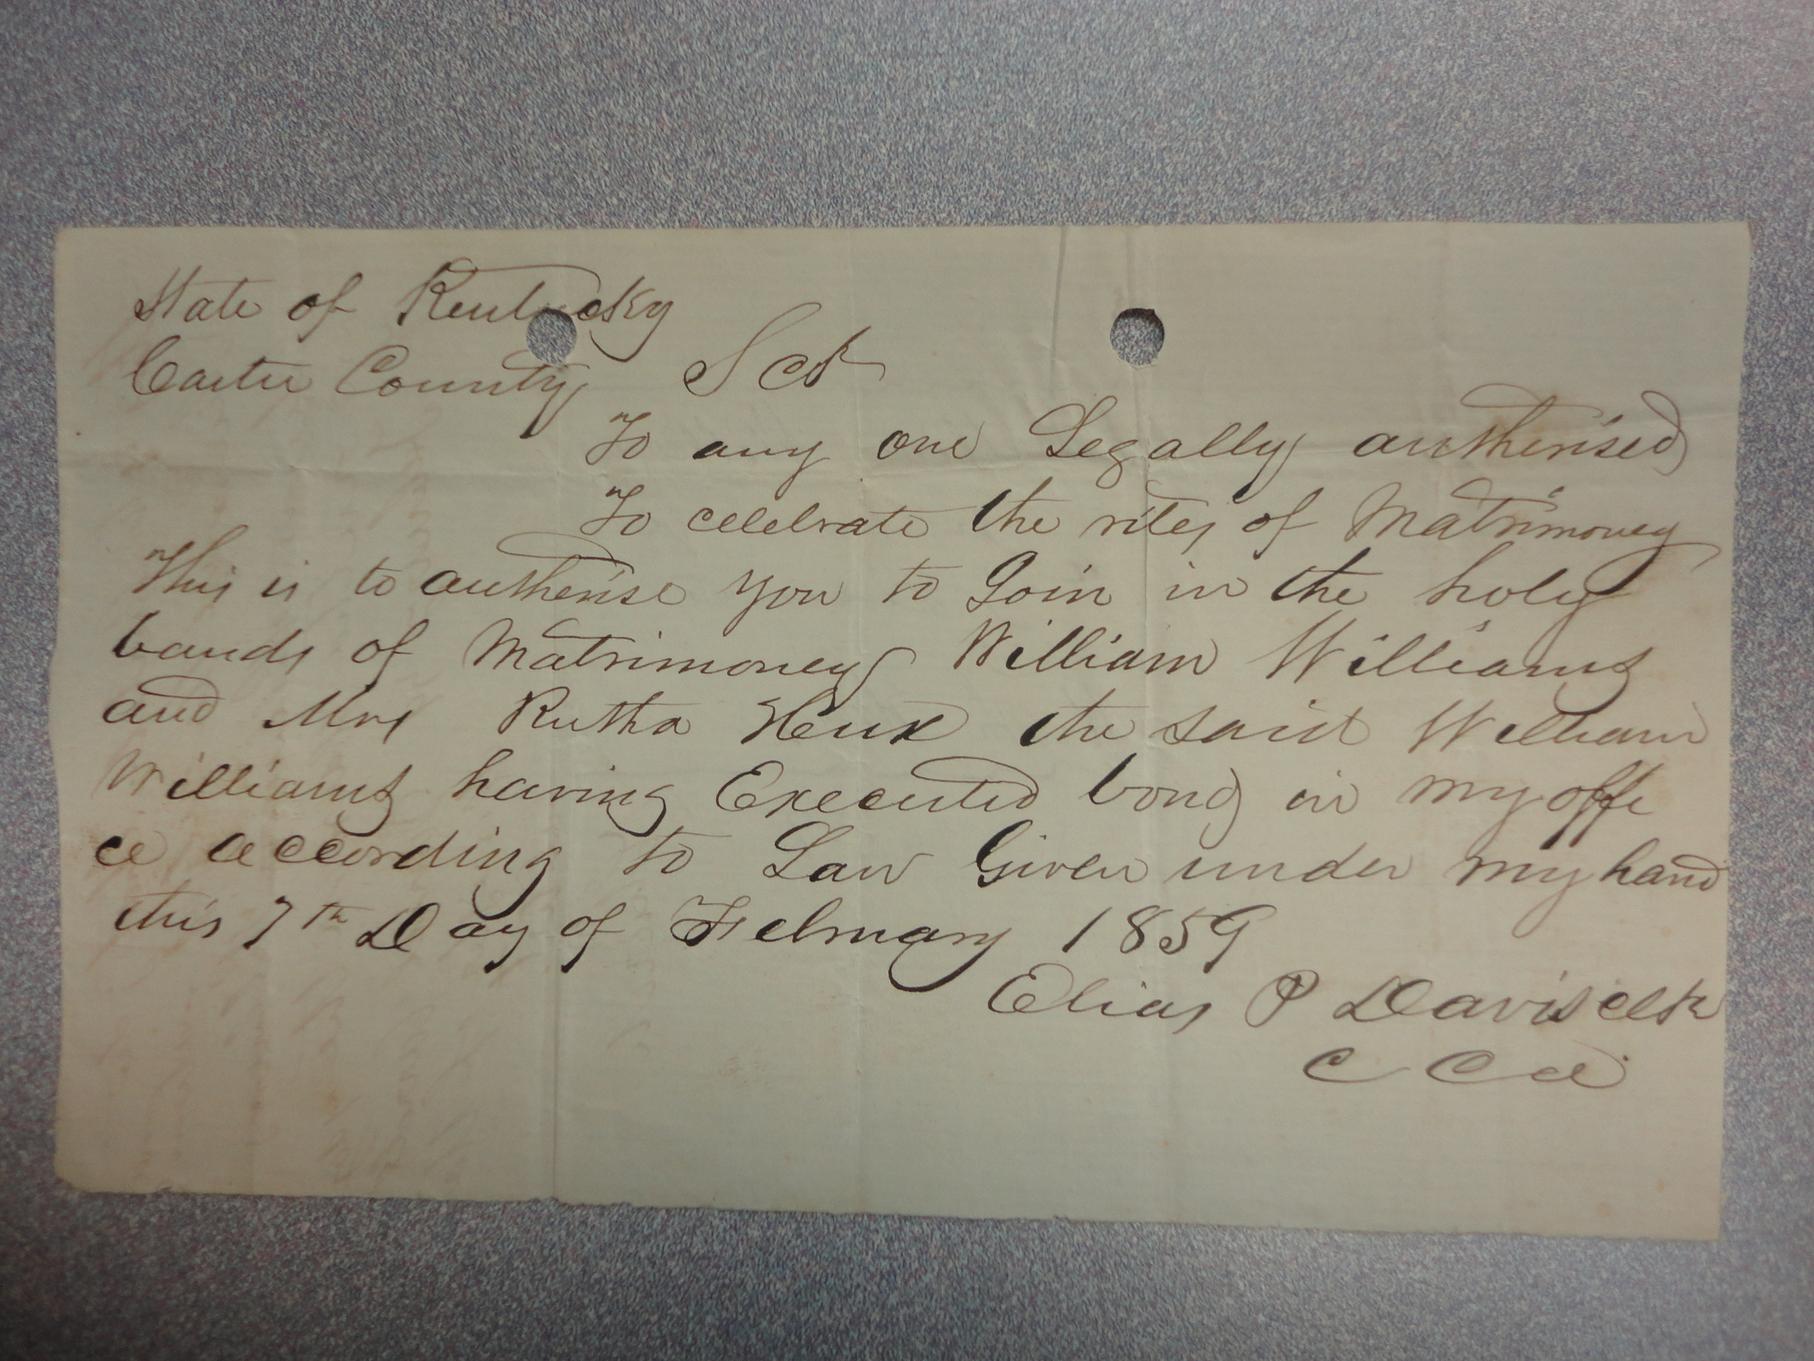 State of Kentucky
Carter County Sct
To any one Legally autherised
To celebrate the rites of Matrimoney
This is to autherise you to Join in the holy
bands of Matrimoney William Williams
and Mrs Rutha Heux the said William
Williams having Executed bond in my offi
ce according to Law Given under my hand
this 7th Day of February 1859
Elias P Davis clk
C C C